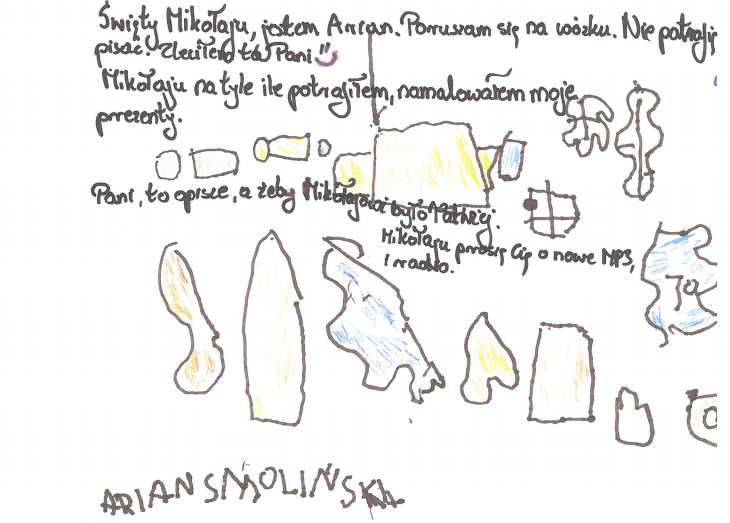 Święty Mikołaju, jestem Arrian. Poruszam się na wózku. Nie potrafię
pisać. Zleciłem to Pani "
Mikołaju na tyle ile potrafiłem, namalowałem moje
prezenty.
Pani, to opisze, a żeby Mikołajowi było łatwiej.
Mikołaju proszę Cię o nowe MP3,
i radio.
Ja
ARIAN SMOLIŃSKA